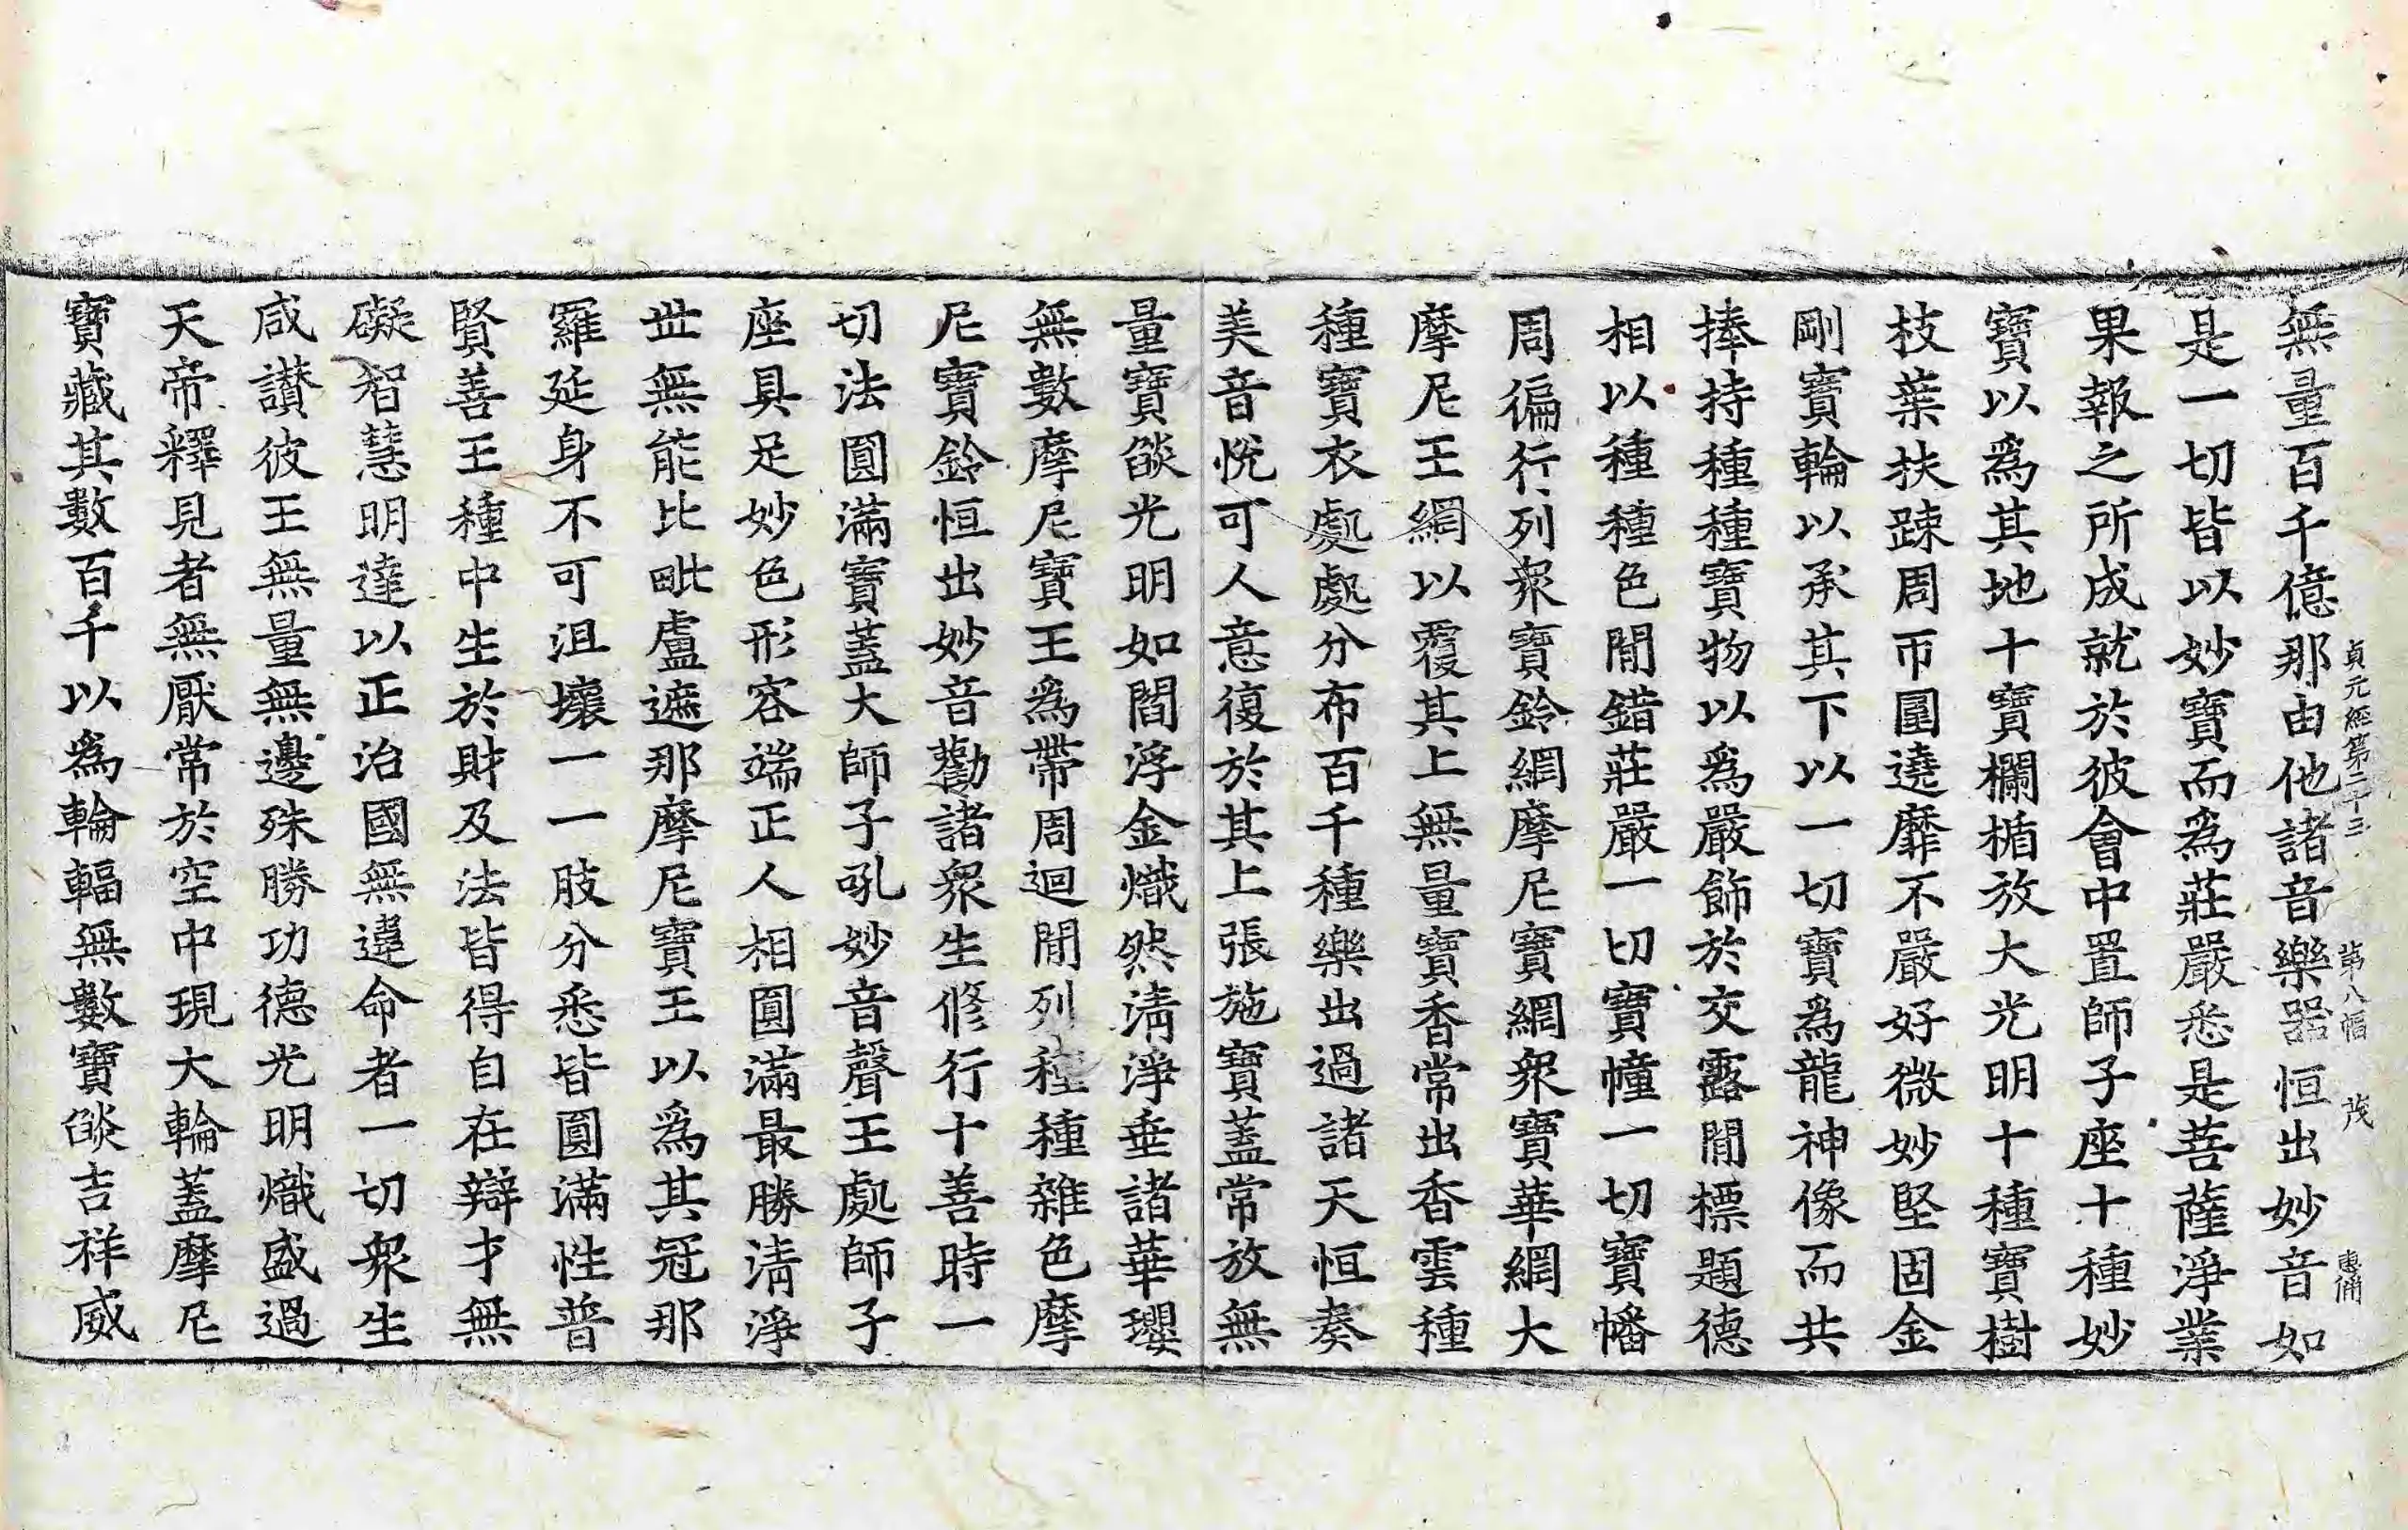 貞元經第二十三 第八幅 茂
無量百千億那由他諸音樂器恒出妙音如
是一切皆以妙寶而爲莊嚴悉是菩薩淨業
果報之所成就於彼會中置師子座十種妙
寶以爲其地十寶欄楯放大光明十種寶樹
枝葉扶踈周帀圍遶靡不嚴好微妙堅固金
剛寶輪以承其下以一切寶爲龍神像而共
捧持種種寶物以爲嚴飾於交露閒標題德
相以種種色閒錯莊嚴一切寶幢一切寶幡
周徧行列衆寶鈴網摩尼寶網衆寶華網大
摩尼王網以覆其上無量寶香常出香雲種
種寶衣處處分布百千種樂出過諸天恒奏
美音悅可人意復於其上張施寶蓋常放無
量寶燄光明如閻浮金熾然淸淨垂諸華瓔
無數摩尼寶王爲帶周迴閒列種種雜色摩
尼寶鈴恒出妙音勸諸衆生修行十善時一
切法圓滿寶蓋大師子吼妙音聲王處師子
座具足妙色形容端正人相圓滿最勝淸淨
世無能比毗盧遮那摩尼寶王以爲其冠那
羅延身不可沮壞一一肢分悉皆圓滿性普
賢善王種中生於財及法皆得自在辯才無
礙智慧明達以正治國無違命者一切衆生
咸讚彼王無量無邊殊勝功德光明熾盛過
天帝釋見者無厭常於空中現大輪蓋摩尼
寶藏其數百千以爲輪輻無數寶燄吉祥威